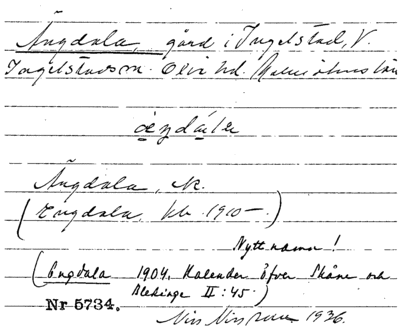 Ängdala, gård i Ingelstad, V.
Ingelstads sn. Oxie hd. Malmöhus län
Ängdala, ek.
(Engdala kb. 1910-)
Nytt namn!
(Engdala 1904, Kalender öfver Skåne och
Blekinge II:45)
Nr 5734.
Nils Nilsson 1936.